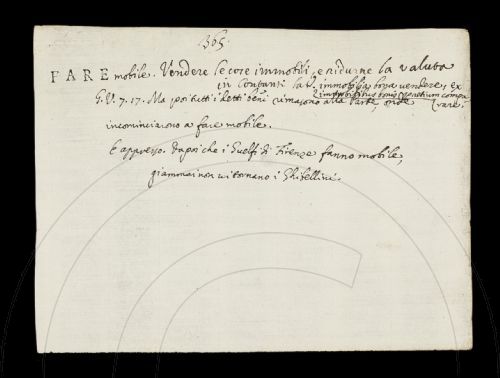 365.
FARE mobile. Vendere le cose immobili, e ridurne la valuta
in Contanti. lat. immobilia bona vendere, ex
immobilibus bonis pecuniam compa
rare.
G.V. 7. 17. Ma poi tutti i detti beni rimasono alla Parte, onde
incominciarono a fare mobile.
E appresso. Dapoi che i Guelfi di Firenze fanno mobile,
giamonai non vi tornano i Ghibellini.